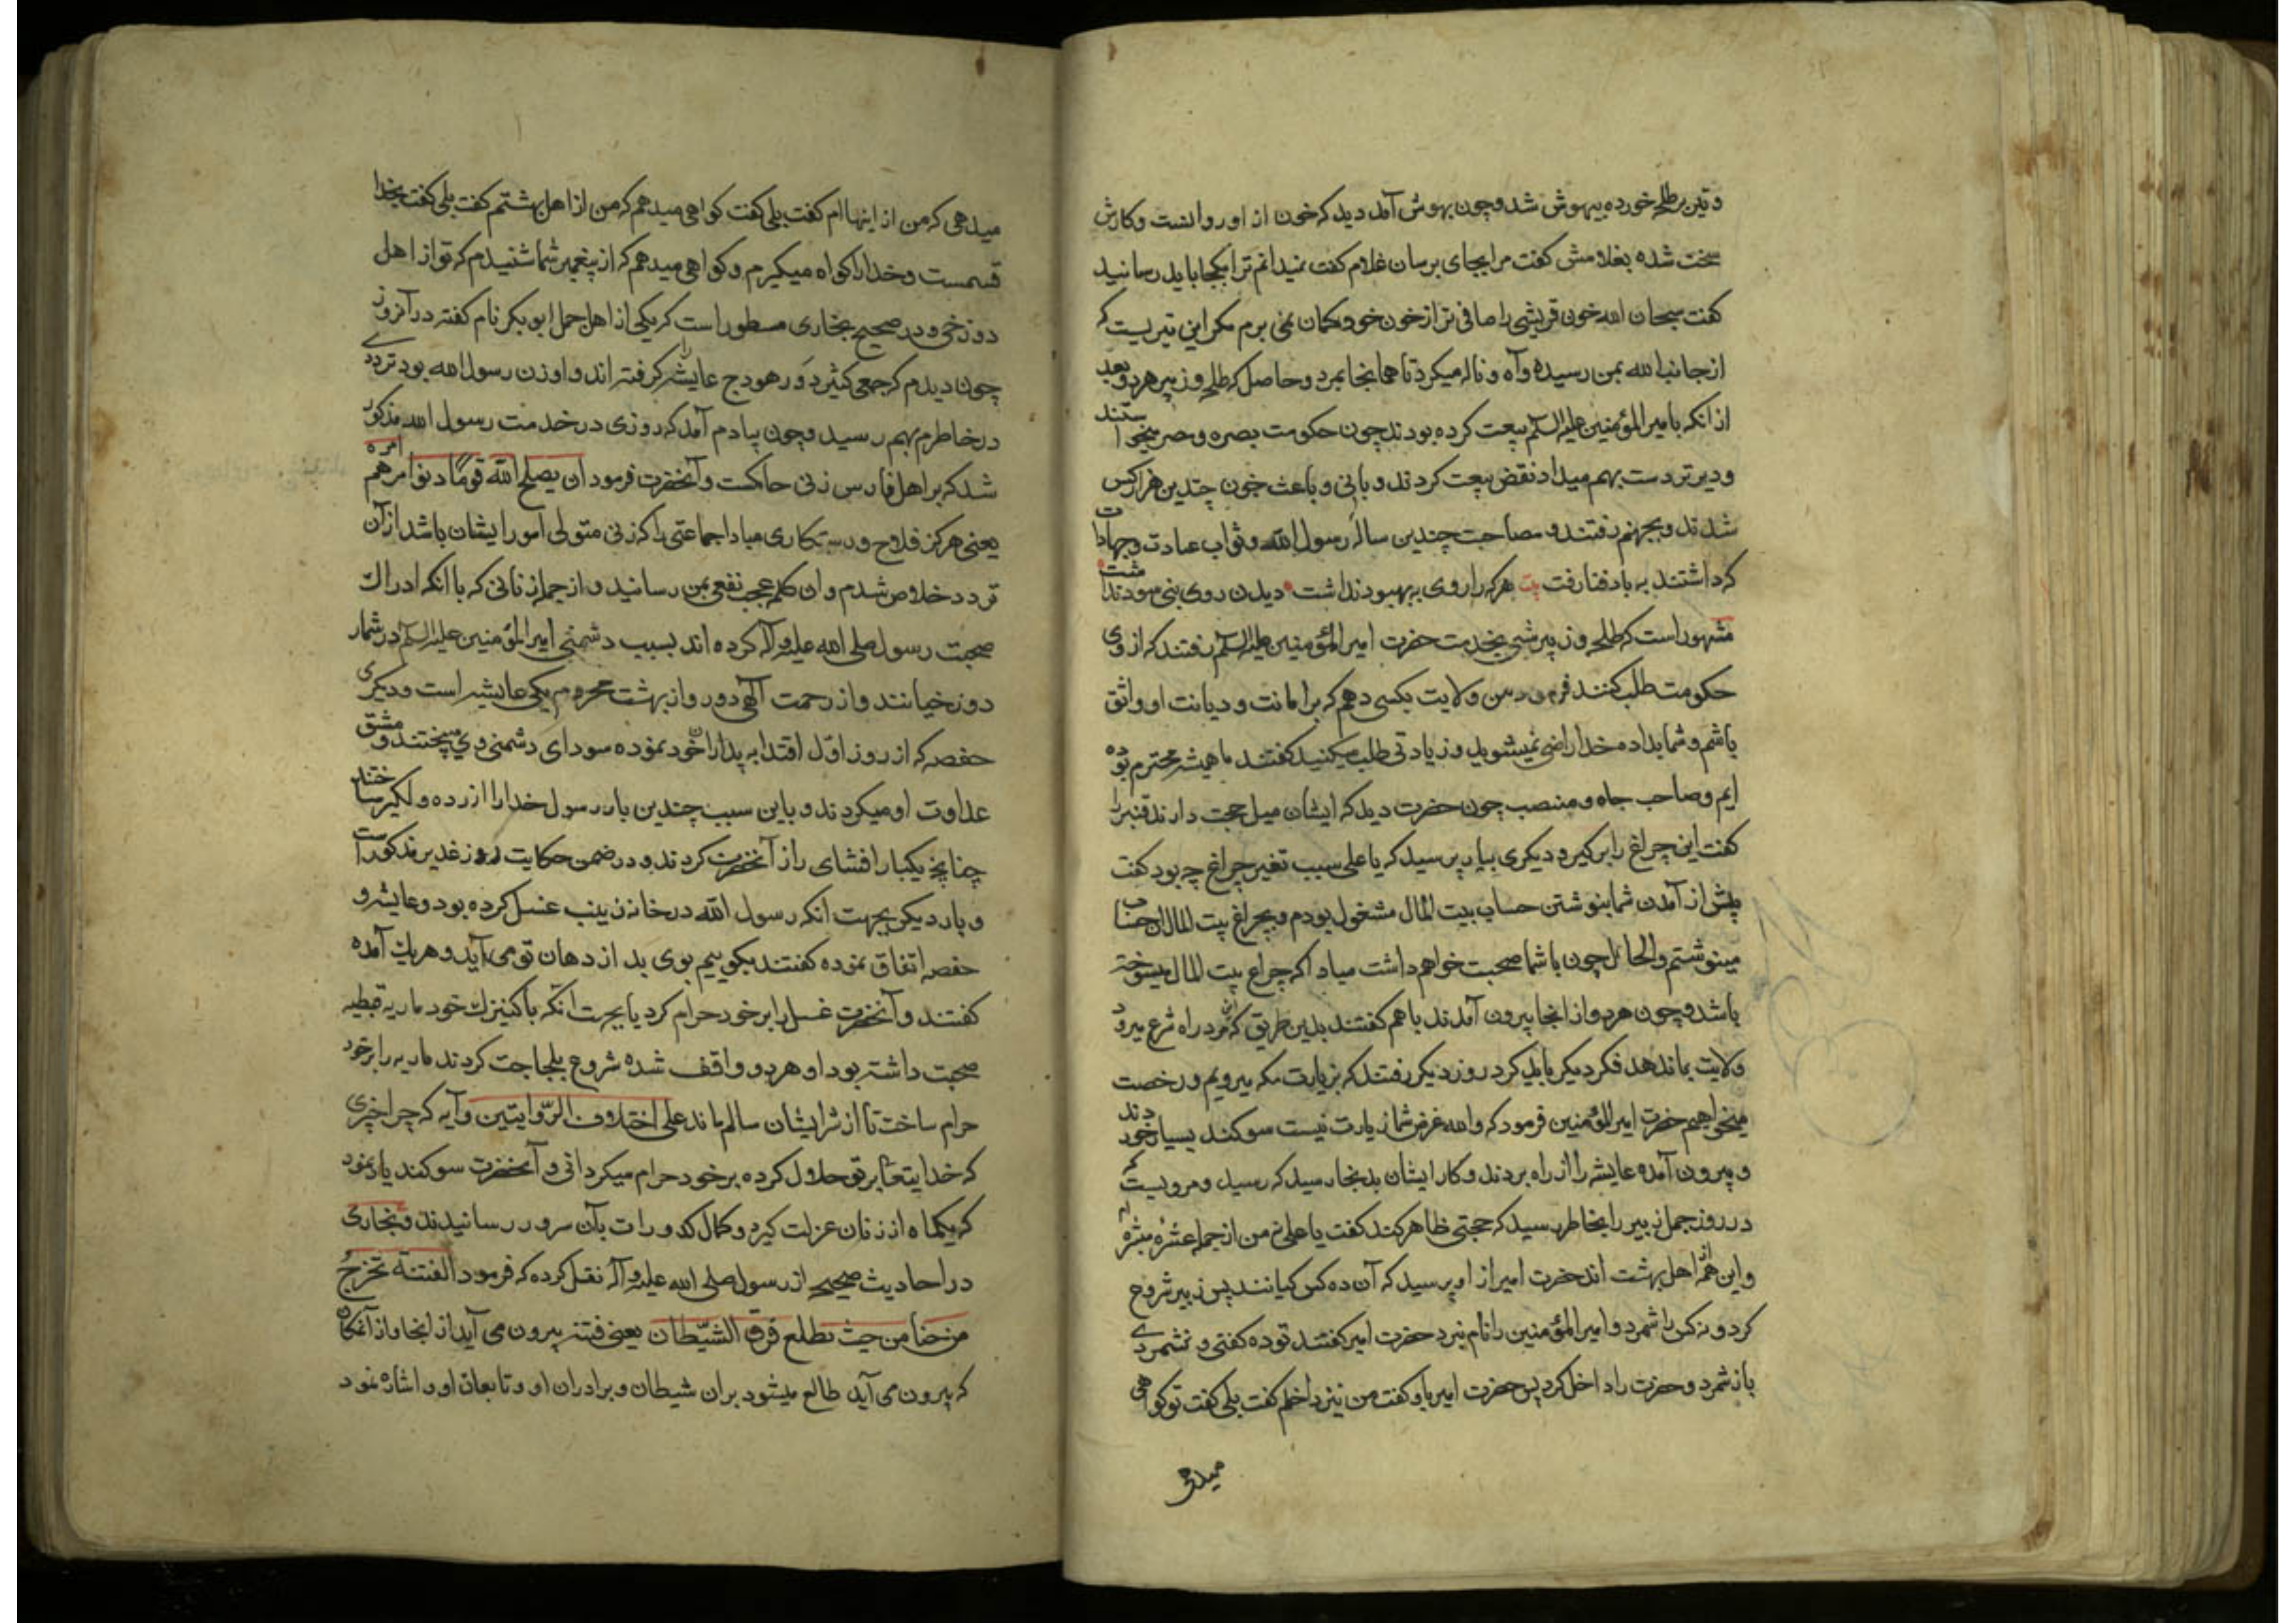 و تیر بر طلحه خورده بیهوش شد و چون بهوش آمد دید که خون از او روانست و کارش
سخت شده بغلامش گفت مرا بجای برسان غلام گفت نمیدانم ترا بکجا باید رسانید
گفت سبحان الله خون قریشی را ضافی تر از خون خود گمان نمی برم مکر این تیریست که
از جانب الله بمن رسیده و آه و ناله میکرد تا همانجا بمرد و حاصل که طلحه و زبیر هر دو بعد
از انکه با امیر المؤمنین علیه السلم بیعت کرده بودند چون حکومت بصره و مصر میخواستند
و دیرتر دست بهم میداد نقض بیعت کردند و بانی و باعث خون چندین هزار کس
شدند و بجهنم رفتند و مصاحبت چندین ساله رسول الله و ثواب عبادت و جهادات
که داشتند به باد فنا رفت بیت هر که را روی به بهبود نداشت دیدن روی نبی سود نداشت
مشهور است که طلحه و زبیر شبی بخدمت حضرت امیر المؤمنین علیه السلم رفتند که از وی
حکومت طلب کنند فرمود من ولایت بکسی دهم که بر امانت و دیانت او واثق
باشم و شما بداده خدا راضی نمیشوید و زیادتی طلب میکنید گفتند ما همیشه محترم بوده
ایم و صاحب جاه و منصب چون حضرت دید که ایشان میل حجت دارند قنبر را
گفت این چراغ را بر گیر و دیگری بیار پرسید که یا علی سبب تغیر چراغ چه بود گفت
پیش از آمدن شما بنوشتن حساب بیت المال مشغول بودم و بچراغ بیت المال ان حساب
مینوشتم والحال چون با شما صحبت خواهم داشت مبادا که چراغ بیت المال میسوخته
باشد و چون هر دو از انجا بیرون آمدند با هم گفتند بدین طریق که این مرد راه شرع میرود
ولایت بما ندهد فکر دیگر باید کرد روز دیگر رفتند که بزیارت مکه میرویم و رخصت
میخواهیم حضرت امیر المؤمنین فرمود که والله غرض شما زیارت نیست سوگند بسیار خوردند
و بیرون آمده عایشه را از راه بردند و کار ایشان بدنجا رسید که رسید و مرویست که
در روز جمل زبیر را بخاطر رسید که حجتی ظاهر کند گفت یا علی من از جمله عشره مبشره ام
و این همه از اهل بهشت اند حضرت امیر از او پرسید که آن ده کس کیانند پس زبیر شروع
کرد و نه کس را شمرد و امیر المؤمنین را نام نبرد حضرت امیر گفتند تو ده گفتی و نه شمردی
باز شمرد و حضرت را داخل کرد پس حضرت امیر باو گفت من نیز داخلم گفت بلی گفت تو گواهی
میدهی
میدهی که من از اینها ام گفت بلی گفت گواهی میدهم که من از اهل بهشتم گفت بلی گفت بخدا
قسمست و خدا را گواه میگیرم و گواهی میدهم که از پیغمبر شما شنیدم که تو از اهل
دوزخی و در صحیح بخاری مسطور است که یکی از اهل جمل ابو بکر نام گفته در آنروز
چون دیدم که جمعی کثیر دور هودج عایشه را گرفته اند و او زن رسول الله بود ترددی
در خاطرم بهم رسید و چون بیادم آمد که روزی در خدمت رسول الله مذکور
شد که بر اهل فارس زنی حاکمست و آنحضرت فرمود ان یصلح الله قومًا دنوا امرهم امرة
یعنی هرگز فلاح و رستگاری مبادا جماعتی را که زنی متولی امور ایشان باشد از آن
تردد خلاص شدم و ان کلمه عجب نفعی بمن رسانید و از جمله زنانی که با آنکه ادراک
صحبت رسول صلی الله علیه و آله کرده اند بسبب دشمنی امیر المؤمنین علیه السلم در شمار
دوزخیانند و از رحمت الهی دور و از بهشت محروم یکی عایشه است و دیگری
حفصه که از روز اول اقتدا به پدران خود نموده سودای دشمنی وی میپختند و مشق
عداوت او میکردند و باین سبب چندین بار رسول خدا را آزرده و دلگیر ساختند
چنانچه یکبار افشای راز آنحضرت کردند و در ضمن حکایت روز غدیر مذکور است
و بار دیگر بجهت انکه رسول الله در خانه زینب عسل کرده بود و عایشه و
حفصه اتفاق نموده گفتند بگوییم بوی بد از دهان تو می آید و هر یک آمده
گفتند و آنحضرت عسل را بر خود حرام کرد یا بجهت انکه با کنیزک خود ماریه قبطیه
صحبت داشته بود او هر دو واقف شده شروع بلجاجت کردند ماریه را بر خود
حرام ساخت تا از شر ایشان سالم ماند علی اختلاف الرّوایتین و آیه که چرا چیزی
که خدایتعا بر تو حلال کرده بر خود حرام میگردانی و آنحضرت سوگند یاد نمود
که یکماه از زنان عزلت گیرد و کمال کدورات بآن سرور رسانیدند و بخاری
در احادیث صحیحه از رسول صلی الله علیه و آله نقل کرده که فرمود الفتنة تخرجُ
من هنا من حیث تطلع قرن الشیّطان یعنی فتنه بیرون می آید از اینجا و از آنمکان
که بیرون می آید طالع میشود بران شیطان و برادران او و تابعان او و اشاره نمود